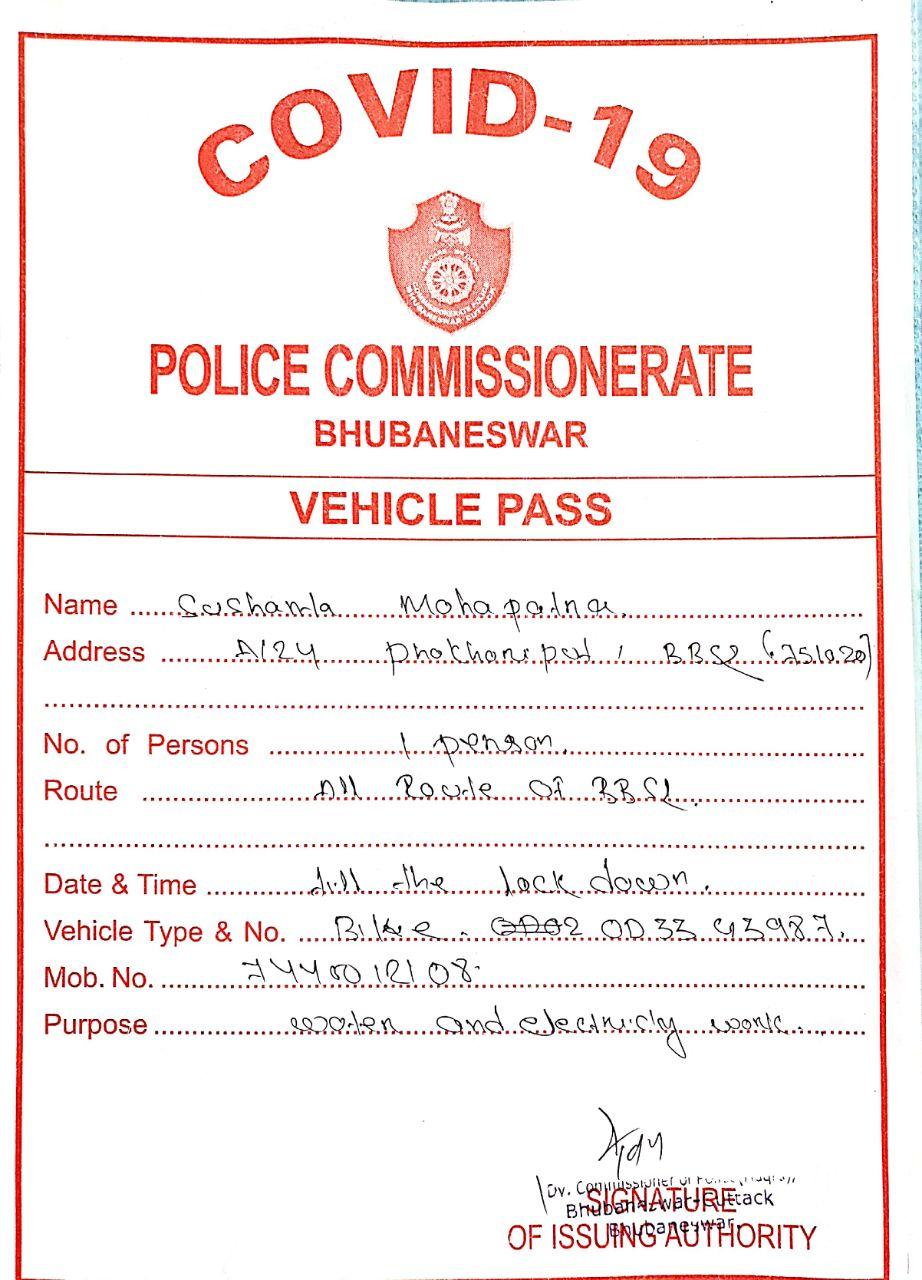 COVID-19
COMMISSIONERATE POLICE
BHUBANESWAR CUTTACK
POLICE COMMISSIONERATE
BHUBANESWAR
VEHICLE PASS
Name Sushanta Mohapatra.
Address A124 , BBSR (751020)
No. of Persons 1 person.
Route All Route Of BBSR.
Date & Time till the lock down.
Vehicle Type & No. Bike . OD33 43987.
Mob. No. 7440012108.
Purpose water and electricity work.
Dy. Commissioner of Police (Hqrs),
Bhubaneswar-Cuttack
Bhubaneswar.
SIGNATURE
OF ISSUING AUTHORITY